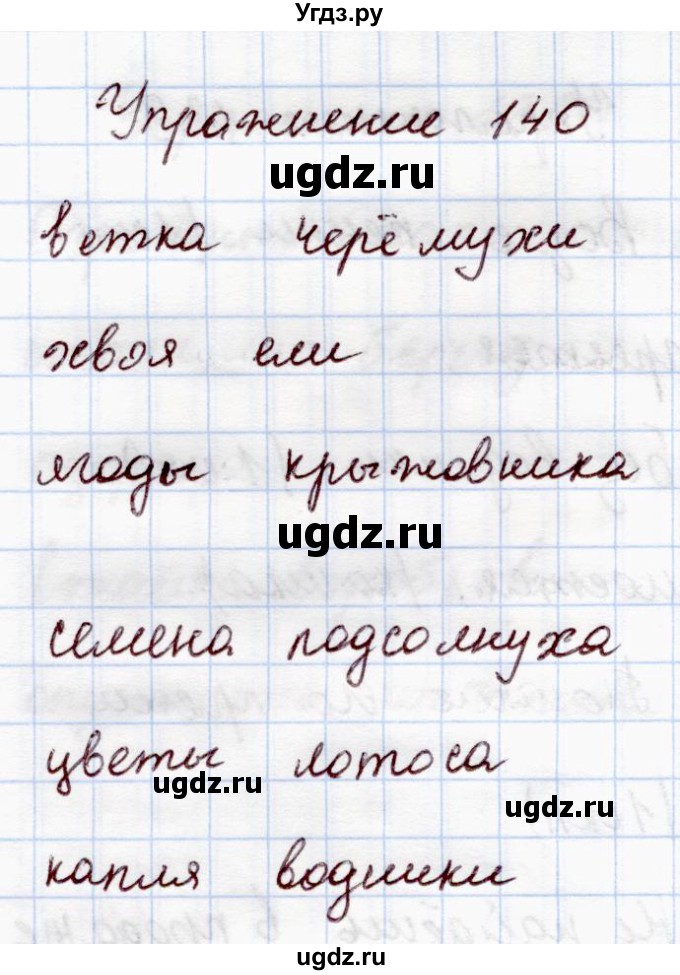 Угдз.ру
Упражнение 140
ugdz.ru
ветка черёмухи
хвоя ели
ягоды крыжовника
ugdz.ru
семена подсолнуха
цветы лотоса
ugdz.ru
ugdz.ru
капля водички
ugdz.ru